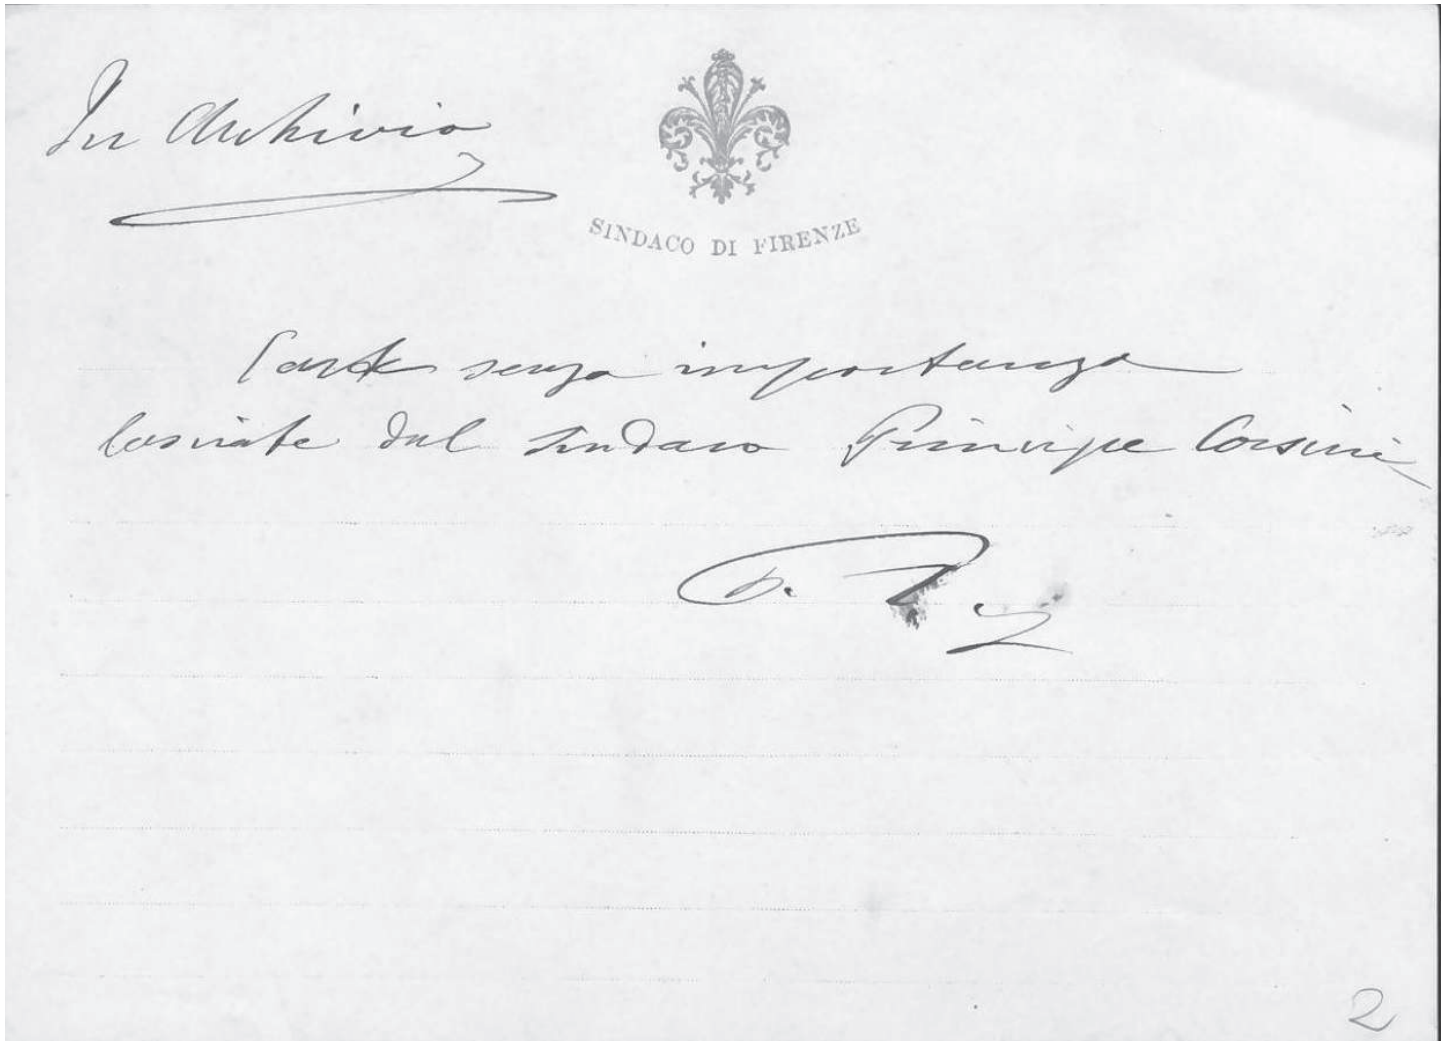 In Archivio
SINDACO DI FIRENZE
Carte senza importanza
lasciate dal Sindaco Principe Corsini
2